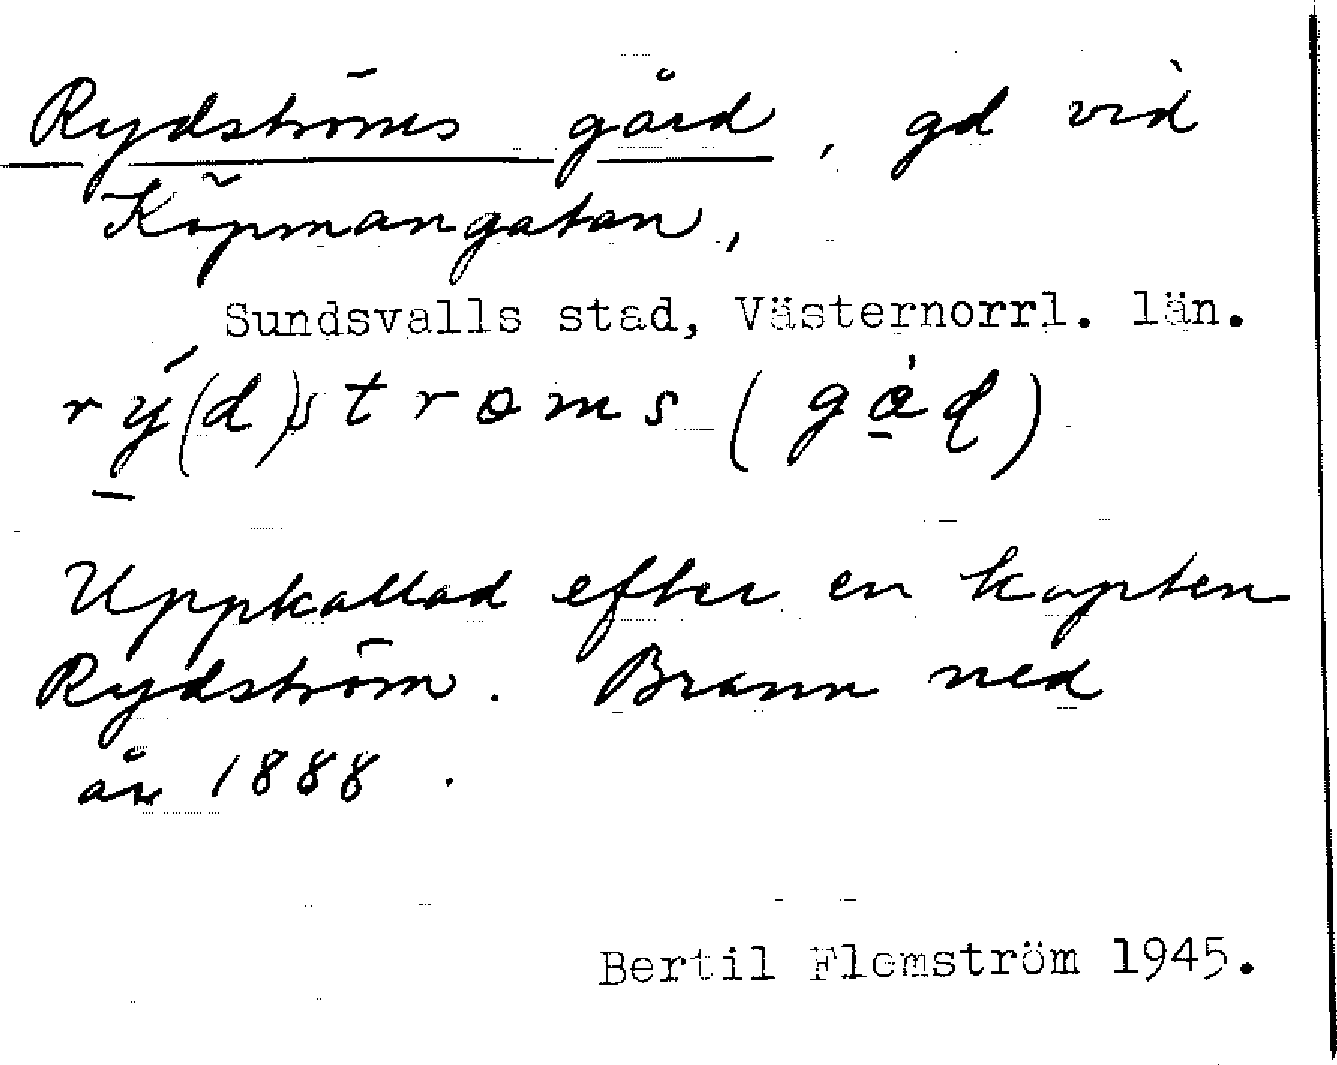 Rydströms gård, gd vid
Köpmangatan,
Sundsvalls stad, Västernorrl. län.
rý̱(d)strøms (gå̱̀ḍ)
Uppkallad efter en kapten
Rydström. Brann ned
år 1888.
Bertil Flemström 1945.